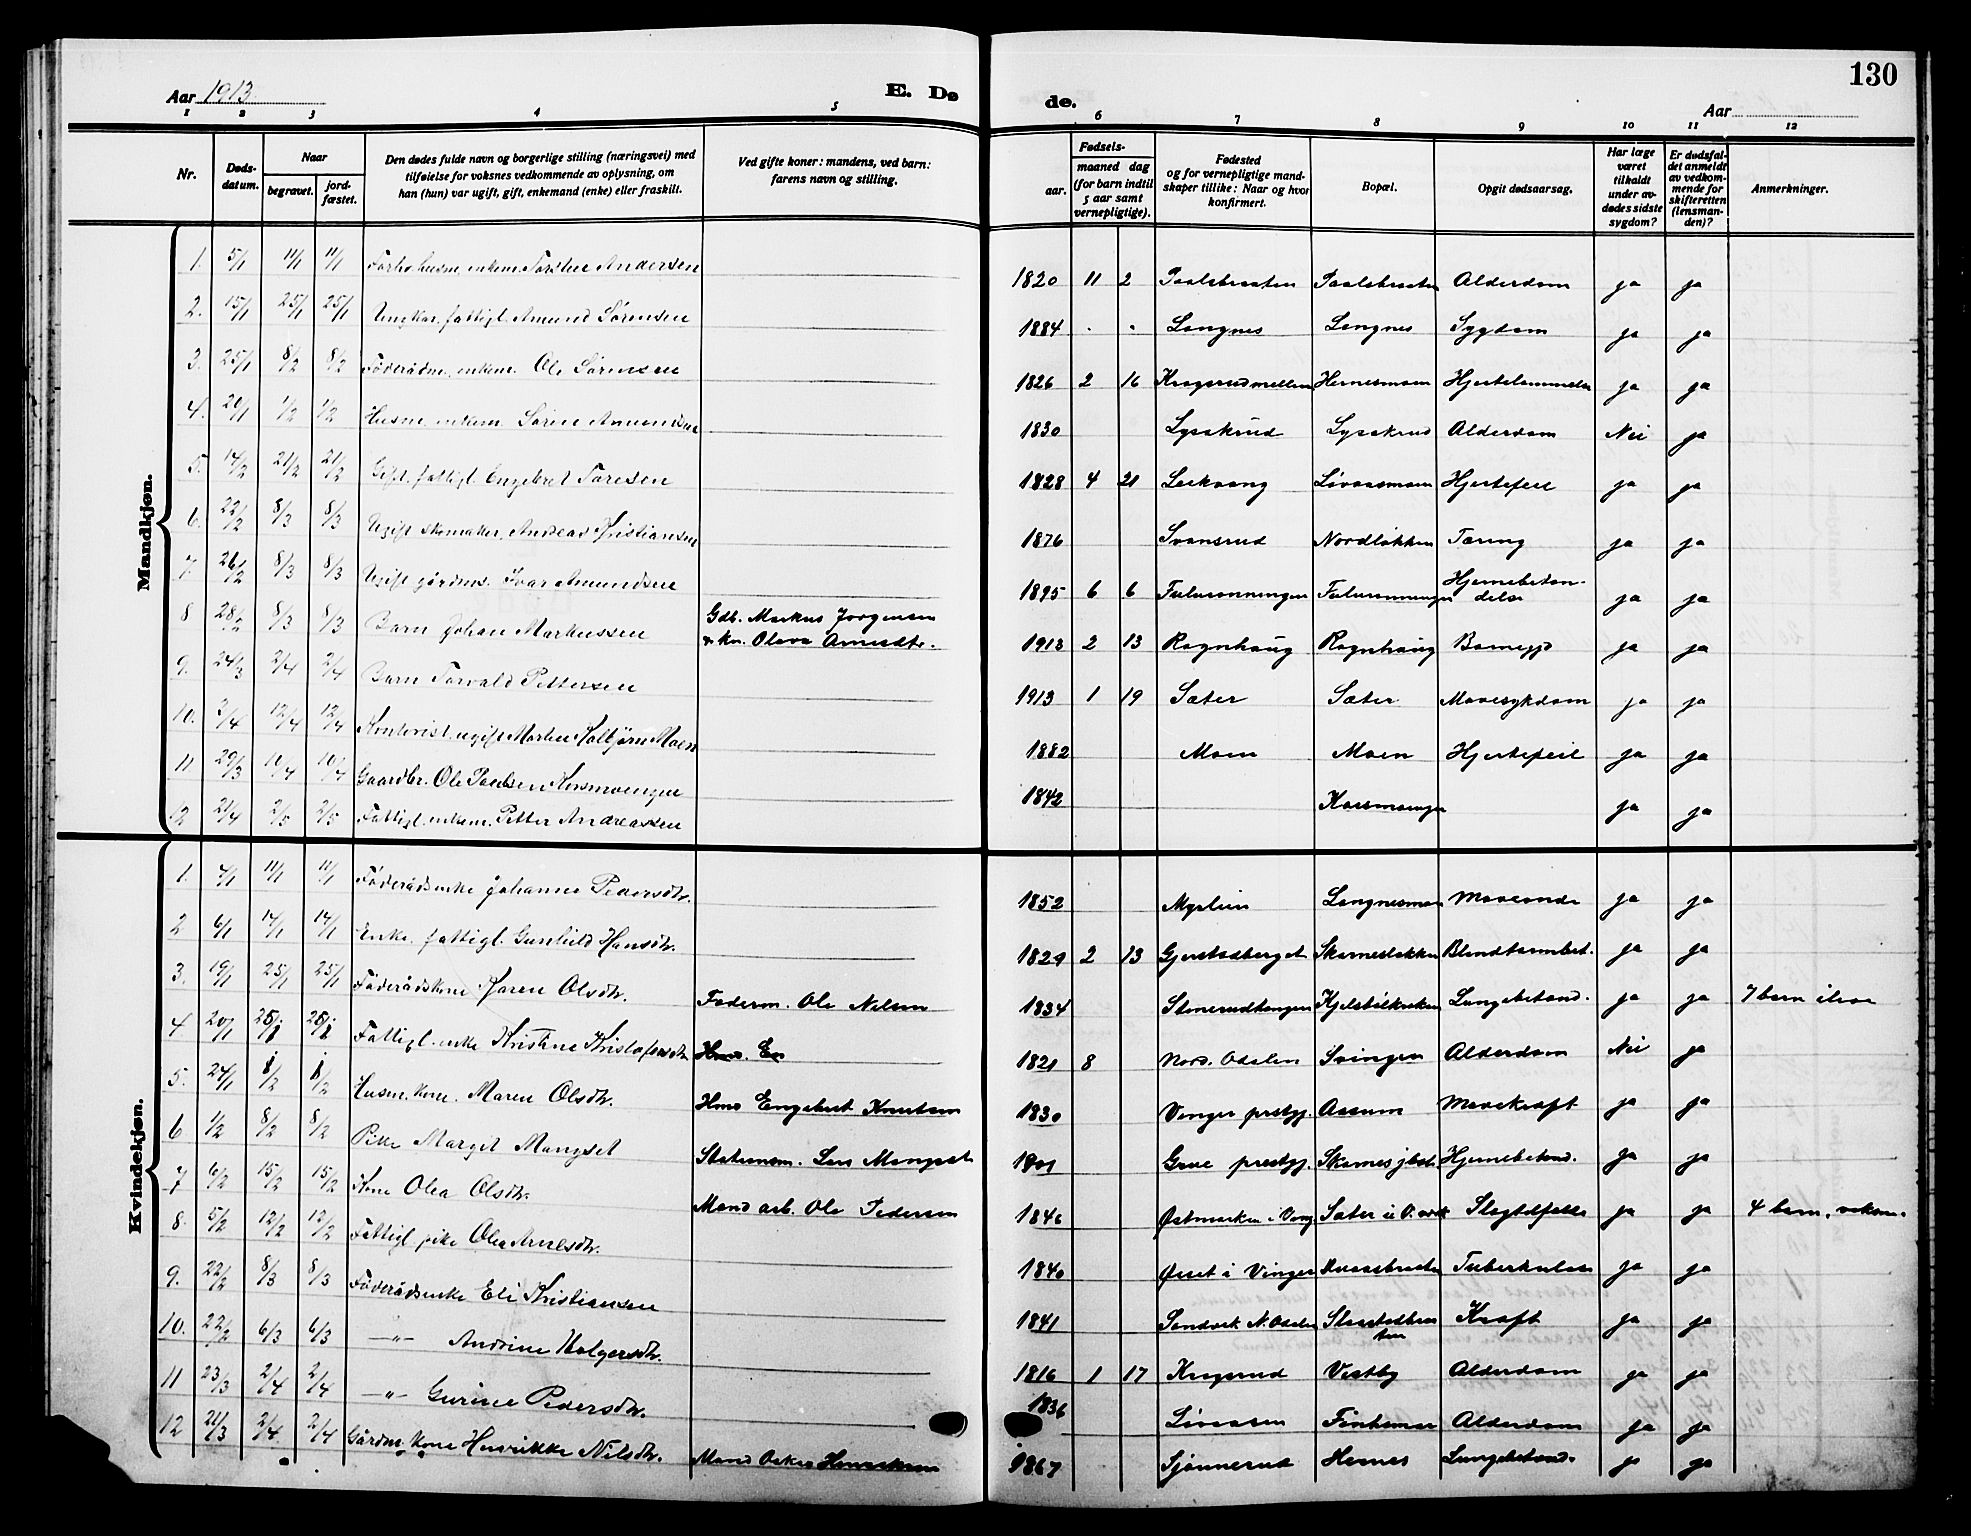 130
Aar 1913
E. Dø
de.
Aar
1 2 3 4 5
6 7 8 9 10 11 12
Nr.
Døds-datum.
Naar
begravet.
jord-fæstet.
Den dødes fulde navn og borgerlige stilling (næringsvei) med tilføielse for voksnes vedkommende av oplysning, om han (hun) var ugift, gift, enkemand (enke) eller fraskilt.
Ved gifte koner: mandens, ved barn: farens navn og stilling.
Fødsels-
aar.
maaned dag (for barn indtil 5 aar samt vernepligtige).
Fødested og for vernepligtige mand-skaper tillike: Naar og hvor konfirmert.
Bopæl.
Opgit dødsaarsag.
Har læge været tilkaldt under av-dødes sidste sygdom?
Er dødsfal-det anmeldt av vedkom-mende for skifteretten (lensman-den)?
Anmerkninger.
Mandkjøn.
1. 5/1 11/1 11/1 Andersen 1820 11 2 Paalsbraaten Paalsbraaten Alderdom ja ja
2. 15/1 25/1 25/1 Ungkar, fattigl. Amund Sørensen 1884 . . Langnes Langnes Sygdom ja ja
3. 25/1 8/2 8/2 Føderådm. enkem. Ole Sørensen 1826 2 16 Hernesmoen Hjertelammelse ja ja
4. 20/1 1/2 1/2 Husm. enkem. Sören Amundsen 1830 Lysakrud Lysakrud Alderdom Nei ja
5. 14/2 21/2 21/2 Gift, fattigl. Engebret Toresen 1828 4 21 Løvaasmoen Hjertefeil ja ja
6. 22/2 8/3 8/3 Ugift skomaker, Andreas Kristiansen 1876 Svansrud Nordløkken Tæring ja ja
7. 26/2 8/3 8/3 Ugift gårdms. Ivar Amundsen 1895 6 6 Hjernebetændelse ja ja
8 28/2 8/3 8/3 Barn Johan Markussen Gdb. Markus Jørgensen & kn. Olava Arnesdtr. 1913 2 13 Rognhaug Rognhaug ja ja
9. 24/3 2/4 2/4 Barn Torvald Pettersen 1913 1 19 Sæter Sæter Mavesykdom ja ja
10. 3/4 12/4 12/4 Kontorist, ugift Martin Kolbjørn Moen 1882 Moen Moen Hjertefeil ja ja
11 29/3 10/4 10/4 Gaardbr. Ole Paulsen Korsmoengen 1842 Korsmoengen ja ja
12 21/4 2/5 2/5 Fattigl. enkem. Petter Andreassen
Kvindekjøn.
1. 4/1 11/1 11/1 Føderådsenke Johanne Pedersdtr. 1852 Myrlien Langnesmoen Maveonde ja ja
2 6/1 14/1 14/1 Enke, fattigl. Gunhild Hansdtr. 1829 2 13 Gjerstadberget Skarnesløkken Blindtarmbet. ja ja
3. 19/1 25/1 25/1 Føderådskone Karen Olsdtr. Føderm. Ole Nilsen 1834 Lungebetænd. ja ja 7 barn ilive
4 20/1 Fattigl. enke Kristine Kristofersdtr. 1821 8 Nord. Odalen Svingen Alderdom Nei ja
5. 24/1 8/2 8/2 Husm. kone Maren Olsdtr. Hmd Engebret Knutsen 1830 Vinger prstgj. Aasum Mavekræft ja ja
6 1/2 8/2 8/2 Pike Margit Mangset Stationsm. Lars Mangset 1901 Grue prestgj. Skarnes jbst. Hjernebetænd. ja ja
7 6/2 15/2 15/2 Kone Olea Olsdtr. Mand arb. Ole Pedersen 1846 Østmarken i Ving. Slagtilfælle ja ja 4 barn, voksne.
8. 5/2 12/2 12/2 Fattigl. pike Olea Arnesdtr. 1840 Øiset i Vinger Tuberkulose ja ja
9. 22/2 8/3 8/3 Føderådsenke Eli Kristiansen 1841 Sandvik N. Odalen Kræft ja ja
10. 22/2 6/3 6/3 —"— Andrine Holgersdtr. 1816 1 17 Krogsrud Vestby Alderdom ja ja
11 23/3 2/4 2/4 —"— Gurine Pedersdtr. 1836 Løvaasen Alderdom ja ja
12 21/3 2/4 2/4 Gårdm. kone Henrikke Nilsdtr. Mand Oskar Henriksen 1867 Sjønnerud Hernes Lungebetænd. ja ja